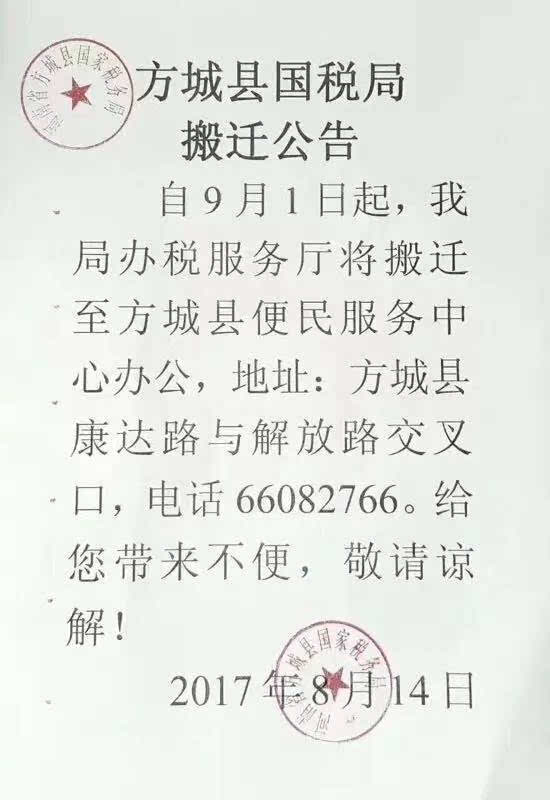 河南省方城县国家税务局
方城县国税局
搬迁公告
自9月1日起，我
局办税服务厅将搬迁
至方城县便民服务中
心办公，地址：方城县
康达路与解放路交叉
口，电话66082766。给
您带来不便，敬请谅
解！
2017年8月14日
河南省方城县国家税务局